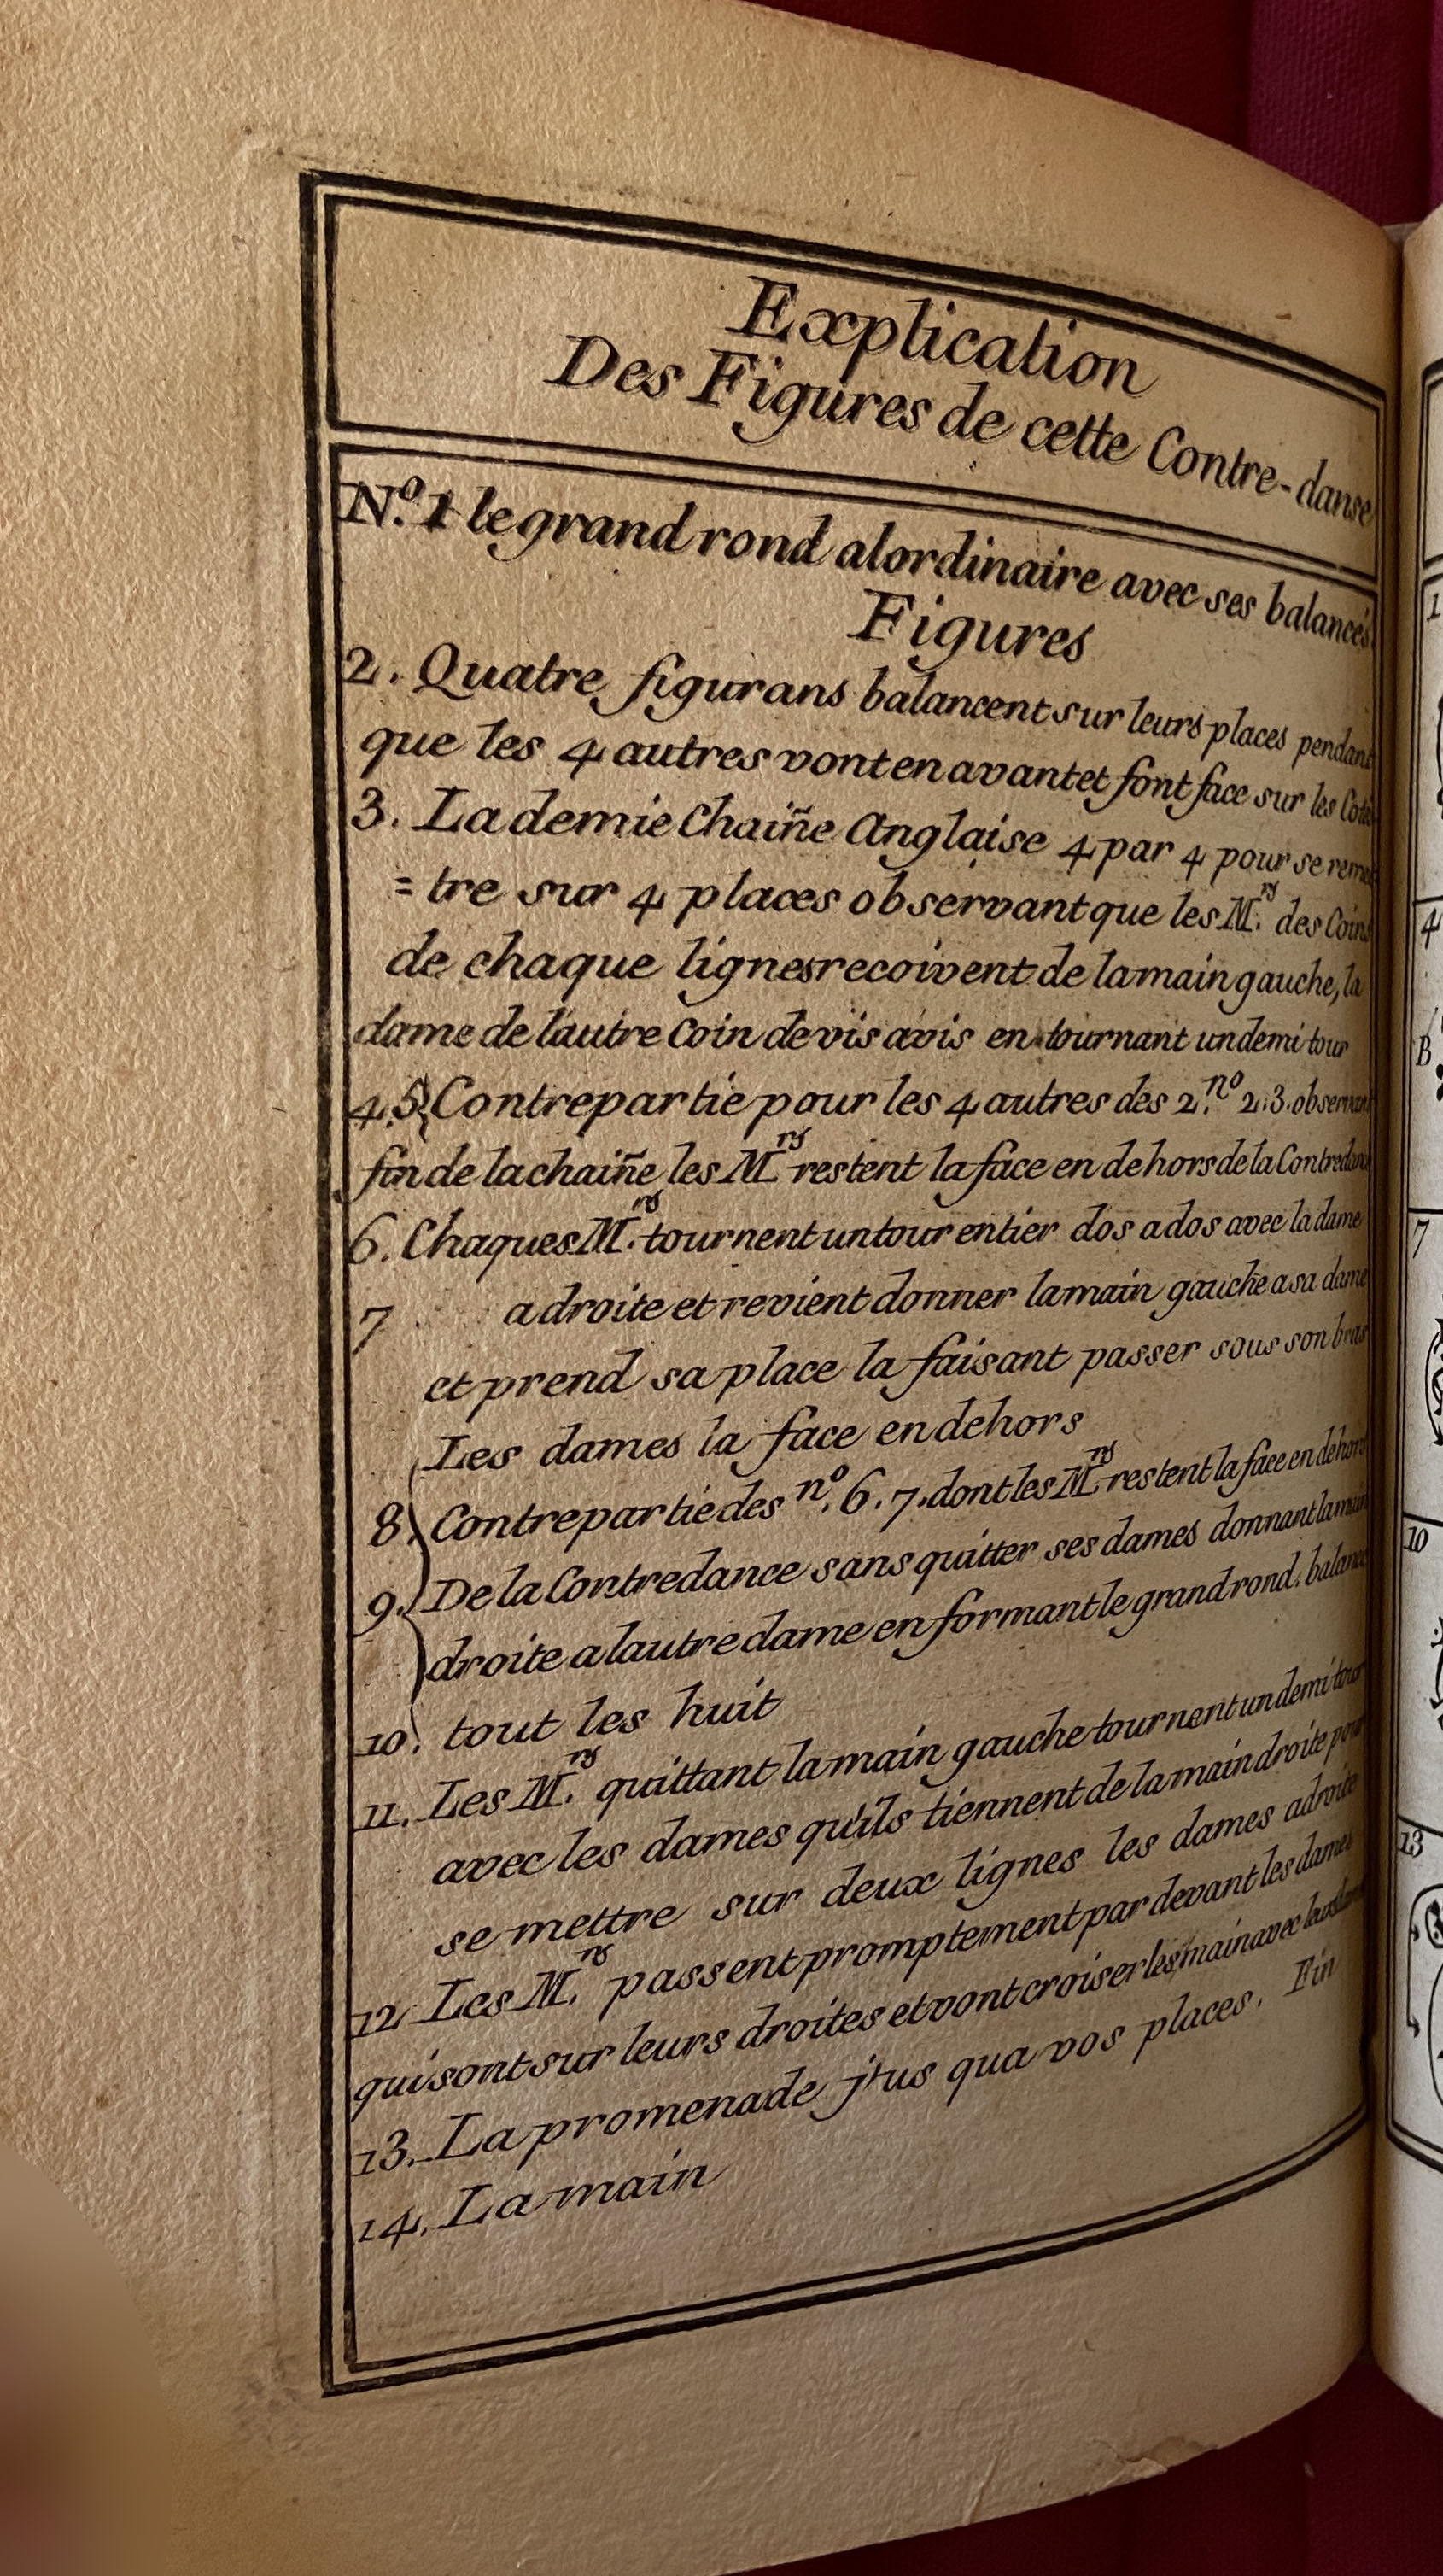 Explication
Des Figures de cette Contre-danse
N.º 1 le grand rond alordinaire avec ses balancés
Figures
2. Quatre figurans balancent sur leurs places pendant
que les 4 autres vont en avant et font face sur les
3. La demie Chaiñe Anglaise 4 par 4 pour se
= tre sur 4 places observant que les M.rs des Coins
de chaque lignes recoivent de la main gauche, la
dame de l'autre Coin de vis avis en tournant un demi tour
4.5 Contrepartie pour les 4 autres des 2.no 2.3.
fin de la chaiñe les M.rs restent la face en dehors de la
6. Chaques M.rs tournent un tour entier dos a dos avec la dame
7 a droite et revient donner la main gauche a sa dame
et prend sa place la faisant passer sous son bras
Les dames la face en dehors
8. Contrepartie des no. 6.7. dont les M.rs restent la face en dehors
9. De la Contredance sans quitter ses dames donnant la main
droite a lautre dame en formant le grand rond.
10. tout les huit
11. Les M.rs quittant la main gauche tournent un demi tour
avec les dames qu'ils tiennent de la main droite pour
se mettre sur deux lignes les dames adroite
12. Les M.rs passent promptement par devant les dames
qui sont sur leurs droites et vont croiser les main avec
13. La promenade j'us qua vos places. Fin
14. La main
1
4
B
7
10
13